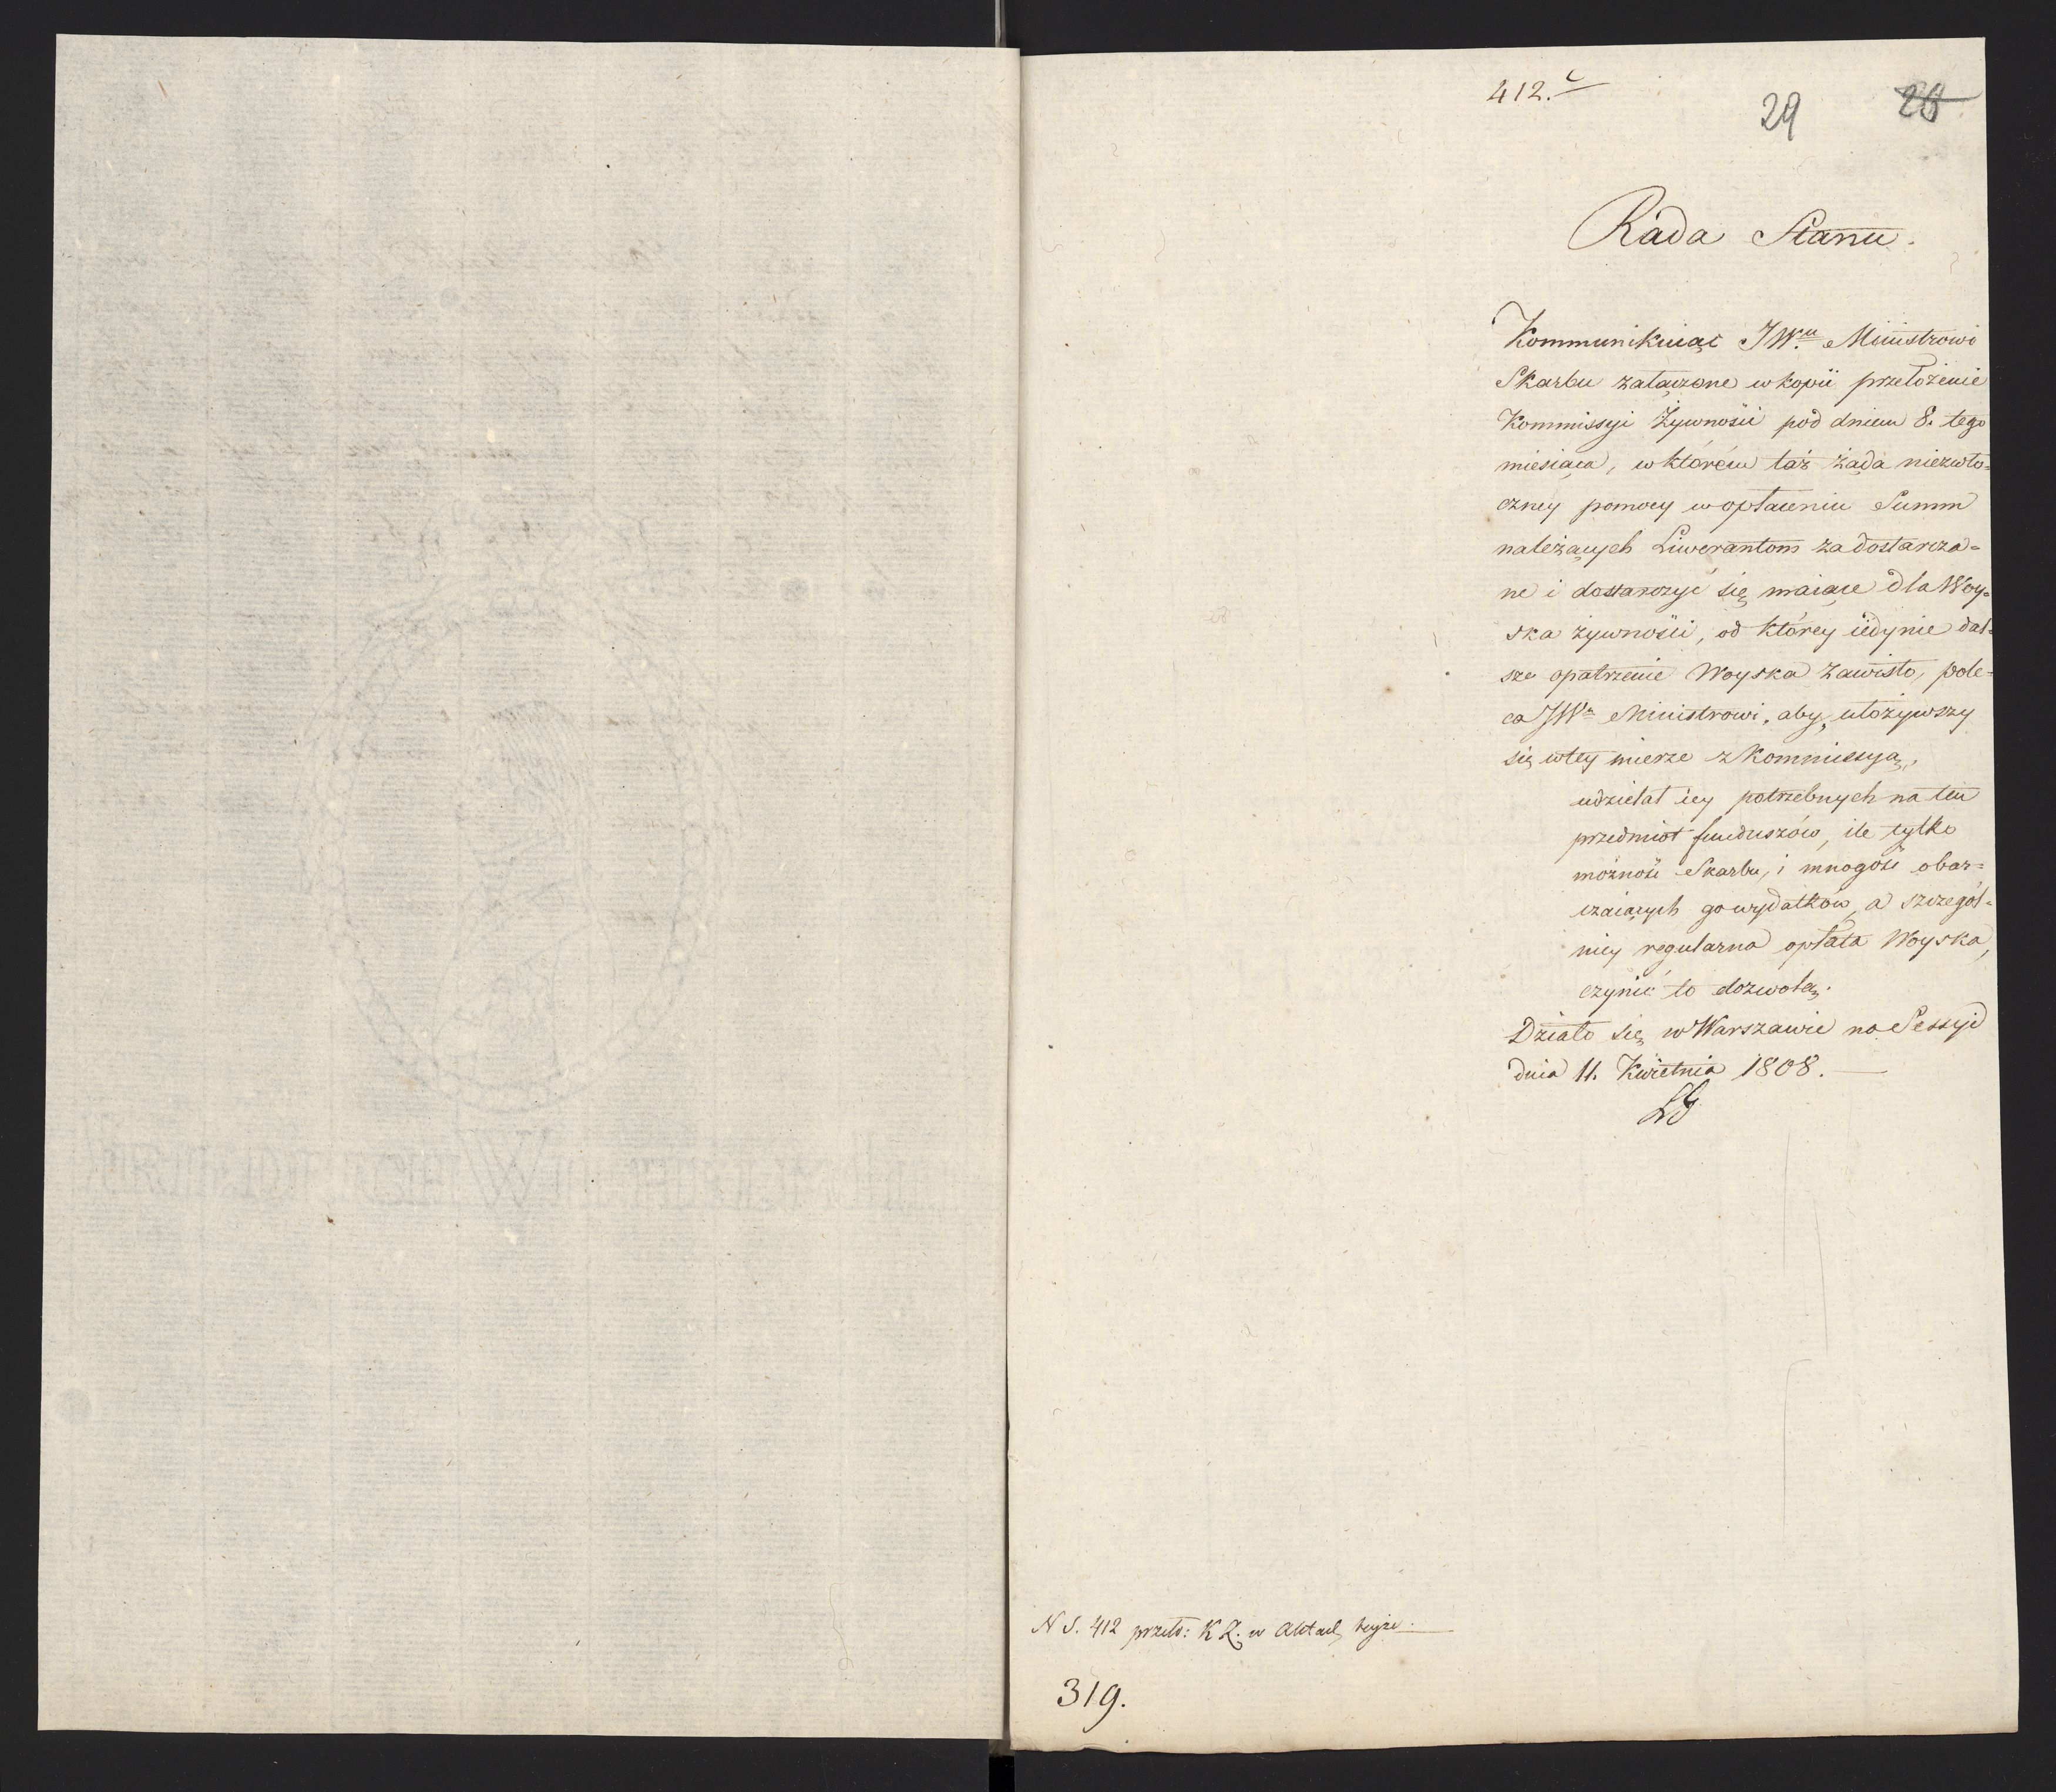 412.c
29 28
Rada Stanu.
Kommunikuiąc JWu Ministrowi
Skarbu załączone w kopii przełożenie
Kommissyi Żywności pod dniem 8. tego
miesiąca, w którém taż żąda niezwło=
czney pomocy w opłaceniu Summ
należących Liwerantom za dostarcza=
ne i dostarczyć się maiące dla Woy=
ska żywności, od którey iedynie dal=
sze opatrzenie Woyska zawisło, pole=
ca JWu Ministrowi, aby, ułożywszy
się w tey mierze z Kommissyą,
udzielał iey potrzebnych na ten
przedmiot funduszów, ile tylko
możność Skarbu, i mnogość obar=
czaiących go wydatków, a szczegól=
niey regularna opłata Woyska,
czynić to dozwolą.
Działo się w Warszawie na Sessyi
dnia 11. Kwietnia 1808.
N S. 412 przeło: K Ż. w Aktach teyże
319.